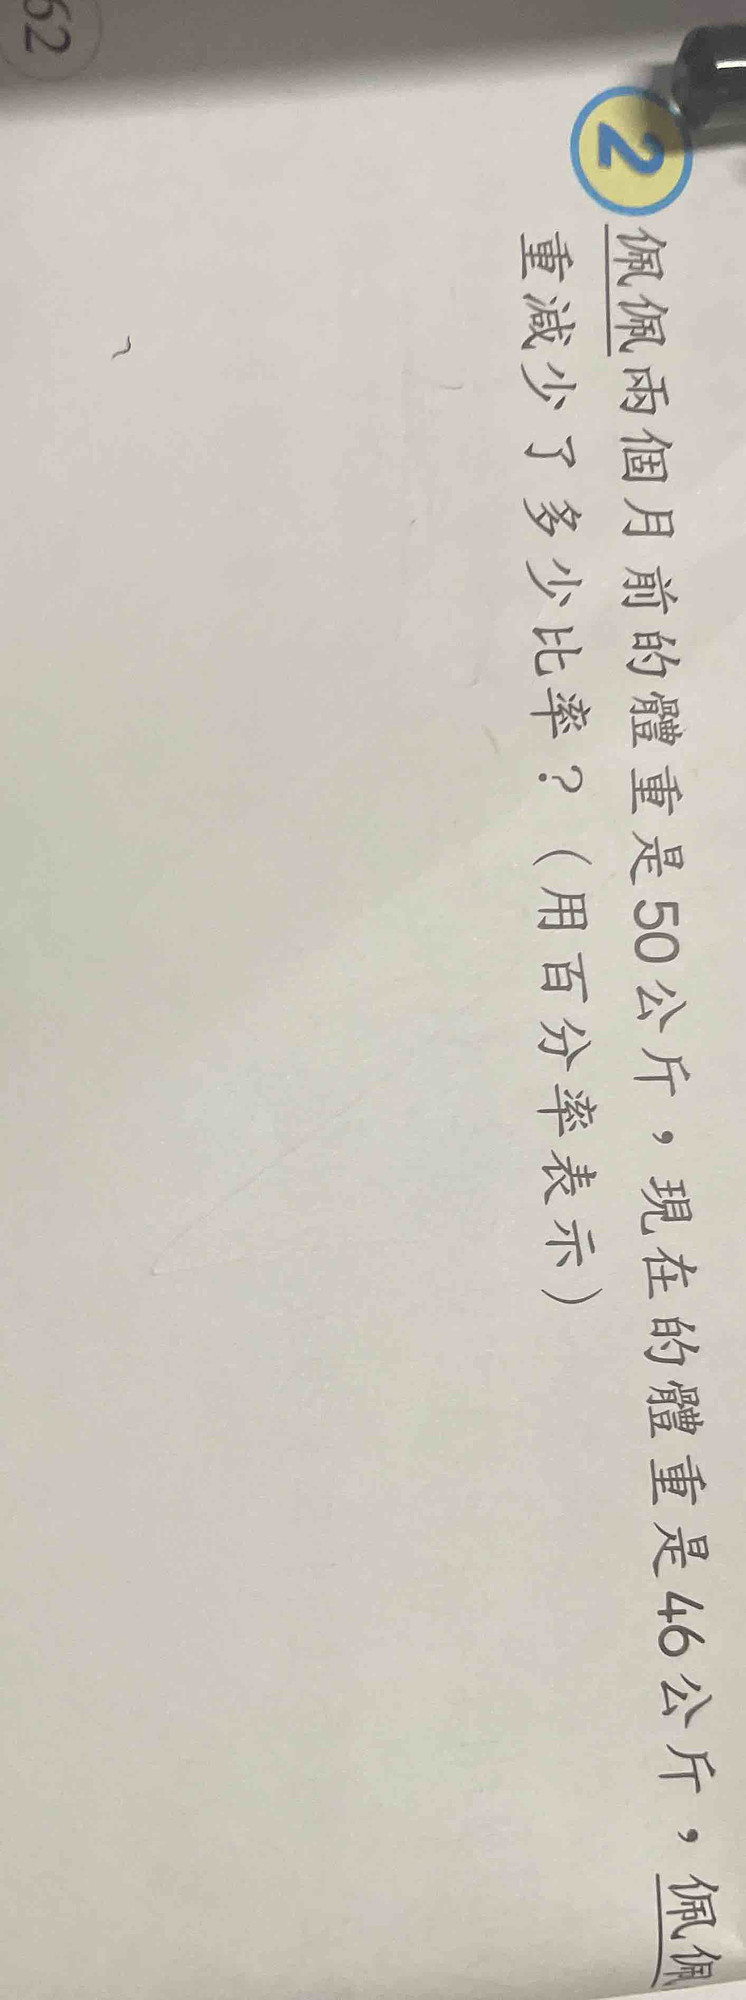 2 佩佩兩個月前的體重是50公斤，現在的體重是46公斤，佩佩
重減少了多少比率？（用百分率表示）
62